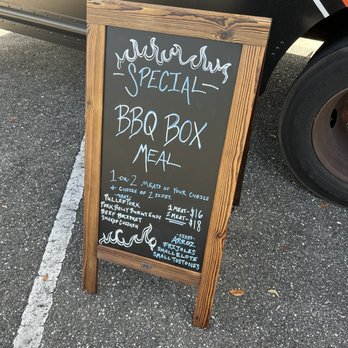 SPECIAL
BBQ BOX
MEAL
1-OR-2 MEATS OF YOUR CHOICE
+ CHOICE OF 2 SIDES.
-MEATS-
PULLED PORK
PORK BELLY BURNT ENDS
BEEF BRISKET
SMOKED CHICKEN
1 MEAT-$16
2 MEAT-$18
-SIDES-
ARROZ
FRIJOLES
SMALL ELOTE
SMALL TOSTONES